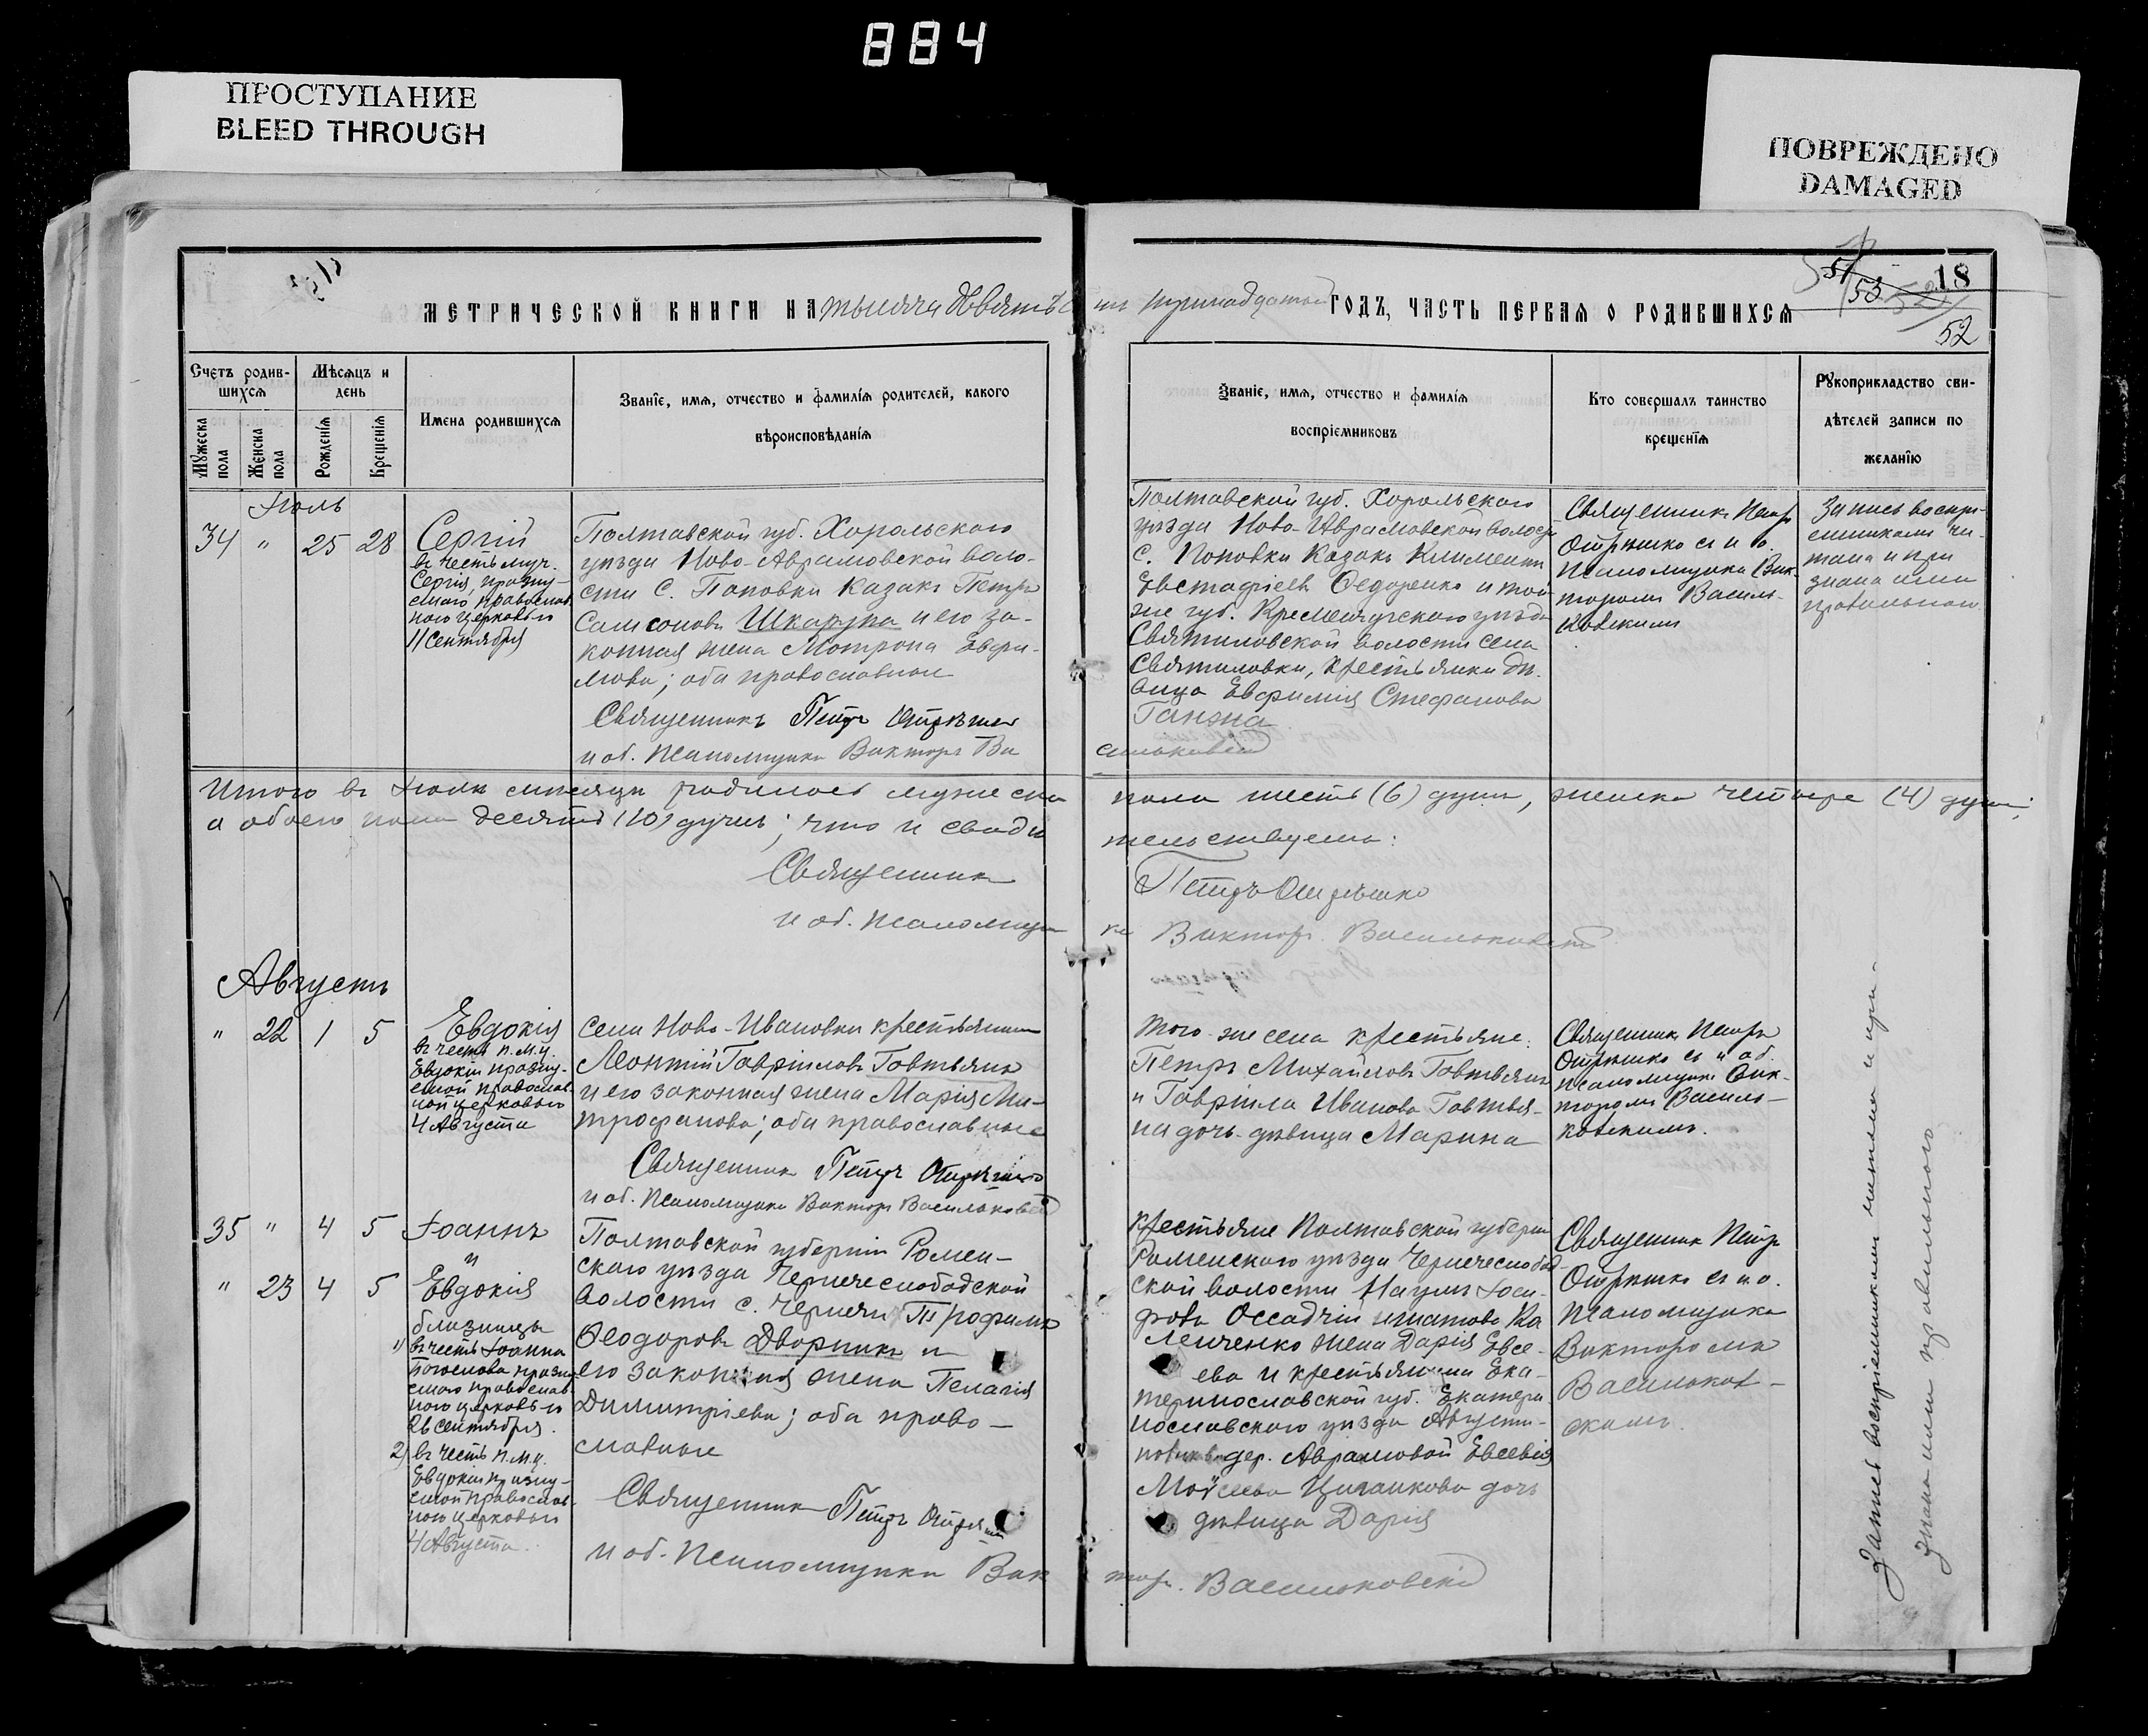 884
ПРОСТУПАНИЕ
BLEED THROUGH
ПОВРЕЖДЕНО
DAMAGED
МЕТРИЧЕСКОЙ КНИГИ НА тысяча девятьсотъ тринадцатый ГОДЪ, ЧАСТЬ ПЕРВАЯ О РОДИВШИХСЯ
18
52
Счетъ родив-
шихся
Мужеска пола
Женска пола
Мѣсяцъ и
день
Рожденія
Крещенія
Имена родившихся
Званіе, имя, отчество и фамилія родителей, какого
вѣроисповѣданія
Званіе, имя, отчество и фамилія
воспріемниковъ
Кто совершалъ таинство
крещенія
Рукоприкладство сви-
дѣтелей записи по
желанію
Іюль
34 " 25 28
Сергій
въ честь муч.
Сергія, празну-
емаго православ
ною церковью
11 Сентября
Полтавской губ. Хорольскаго
уѣзда Ново-Аврамовской воло-
сти С. Поповки Казакъ Петръ
Самсоновъ Шкарупа и его за-
конная жена Мотрона Евфи-
мова; оба православные
Священникъ Петръ Отрѣшко
и об. Псаломщика Викторъ Ва
сильковскій
Полтавской губ. Хорольскаго
уѣзда Ново-Аврамовской волости
с. Поповки Казакъ Климентъ
Евстафіевъ Федоренко и той
же губ. Кременчугскаго уѣзда
Святиловской волости села
Святиловки, крестьянка дѣ-
вица Евфимія Стефанова
Ганжа
Священникъ Петръ
Отрѣшко съ и о.
псаломщика Вик-
торомъ Василь-
ковскимъ
Запись воспрі-
емниками чи-
тана и при
знана ими
правильною
Итого въ Іюлѣ мѣсяцѣ родилось мужеска пола шесть (6) душъ, женска четыре (4) души;
а обоего пола десять (10) душъ; что и свидѣ тельствуемъ:
Священникъ Петръ Отрѣшко
и об. псаломщи ка Викторъ Васильковскій
Августъ
" 22 1 5
Евдокія
въ честь п.м.ц.
Евдокіи празну-
емой православ-
ной церковью
4 Августа
Села Ново-Ивановки крестьянинъ
Леонтій Гавріиловъ Говтвянъ
и его законная жена Марія Ми-
трофанова; оба православные
Священникъ Петръ Отрѣшко
и об. Псаломщика Викторъ Васильковскій
Того-же села крестьяне:
Петръ Михайловъ Говтвянъ
и Гавріила Иванова Говтвя-
на дочь-дѣвица Марина
Священникъ Петръ
Отрѣшко съ и об.
псаломщика Вик-
торомъ Василь-
ковскимъ.
35 " 4 5
Іоаннъ
и
" 23 4 5
Евдокія
близнецы
1) въ честь Іоанна
Богослова празну-
емаго православ-
ною церковью
26 Сентября.
2) въ честь п.м.ц.
Евдокіи празну-
емой православ-
ною церковью
4 Августа.
Полтавской губерніи Ромен-
скаго уѣзда Чернечеслободской
волости с. Чернечи Трофимъ
Феодоровъ Дворникъ и
его законная жена Пелагія
Димитріева; оба право-
славные
Священникъ Петръ Отрѣшко
и об. Псаломщика Вик торъ Васильковскій
Крестьяне Полтавской губерніи
Роменскаго уѣзда Чернечеслобод-
ской волости Наумъ Іоси-
фовъ Оссадчій
жена Дарія Евсе-
ева и крестьянина Ека-
теринославской губ. Екатери
нославскаго уѣзда
дер. Аврамовой Евсевія
Моѵсеева Циганкова дочь
дѣвица Дарія
Священникъ Петръ
Отрѣшко съ и о.
Псаломщика
Викторомъ
Васильков-
скимъ.
Запись воспріемниками читана и при-
знана ими правильною